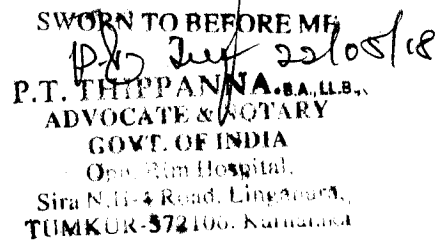 SWORN TO BEFORE ME
22/05/18
P.T. THIPPANNA. B.A., LL.B.,
ADVOCATE & NOTARY
GOVT. OF INDIA
Opp. Rim Hospital,
Sira N.H-4 Road, Lingapura,
TUMKUR-572106. Karnataka